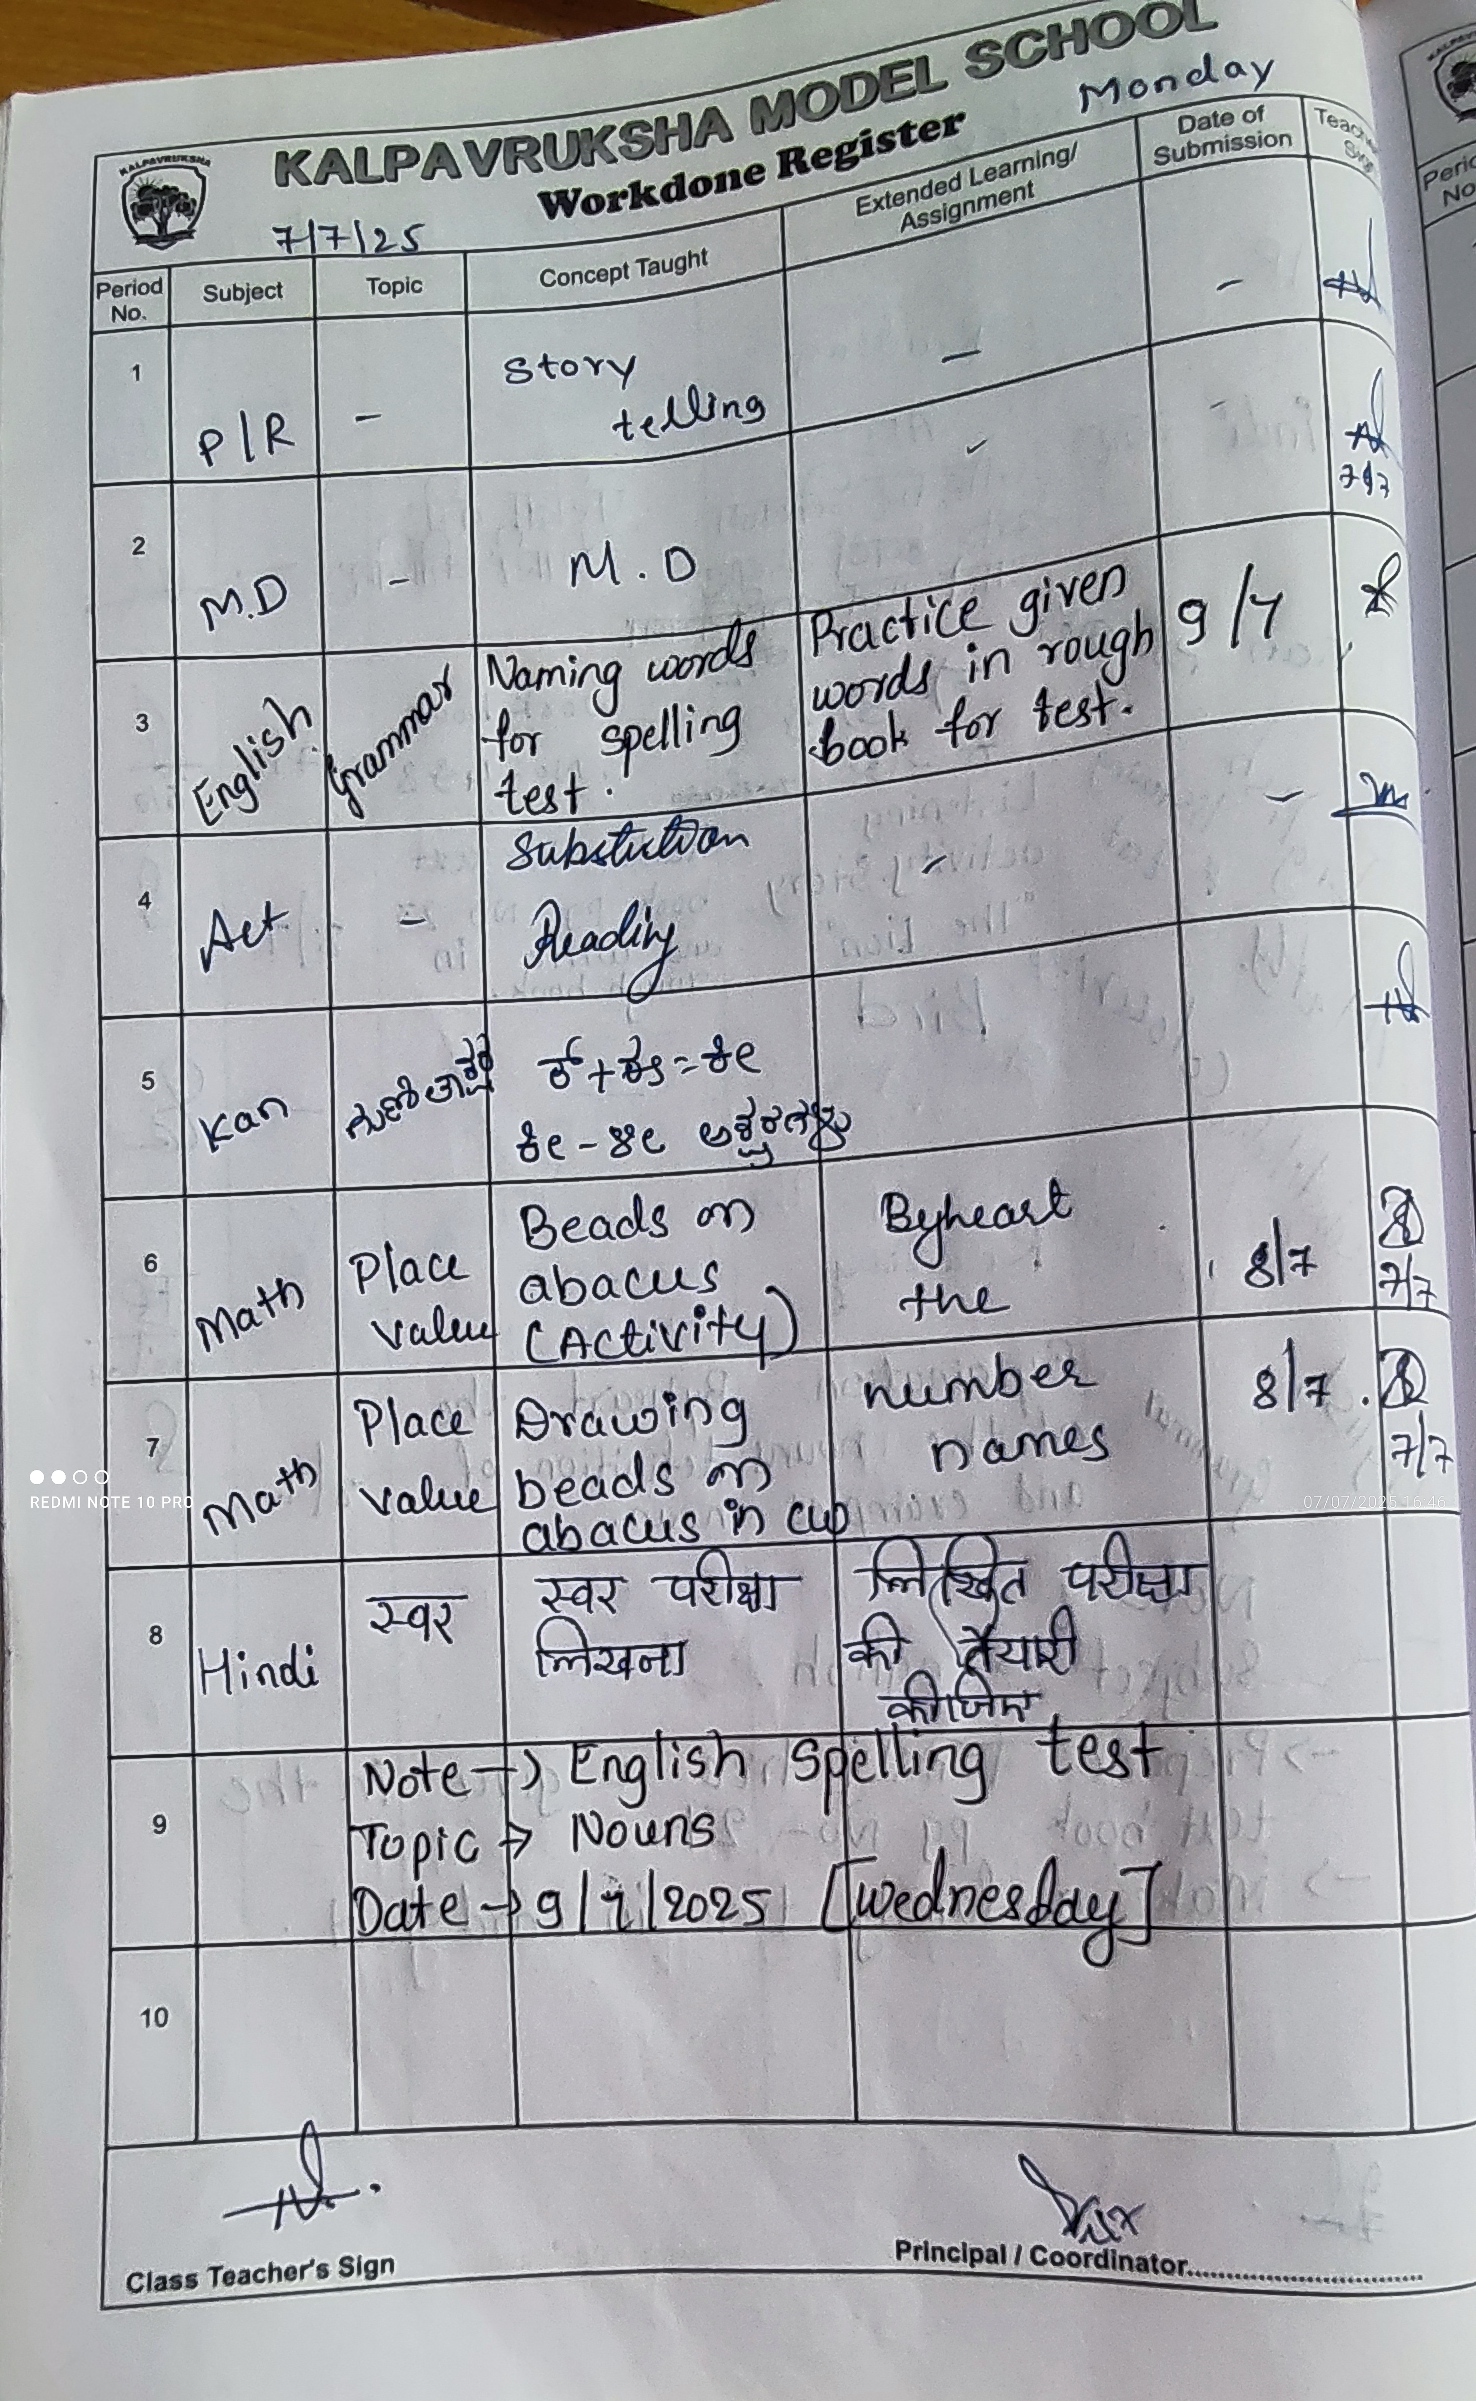 KALPAVRUKSHA MODEL SCHOOL
Monday
KALPAVRUKSHA
Workdone Register
7/7/25
Period No.
Subject
Topic
Concept Taught
Extended Learning/
Assignment
Date of
Submission
1
P/R
-
Story
telling
-
-
2
M.D
-
M.D
-
-
7/7
3
English
Grammar
Naming words
for spelling
test.
Practice given
words in rough
book for test.
9/7
4
Act
-
Substution
Reading
-
-
5
Kan
6
Math
Place
Value
Beads on
abacus
(Activity)
Byheart
the
8/7
7/7
7
Math
Place
Value
Drawing
beads on
abacus in cup
number
names
8/7
7/7
8
Hindi
स्वर
स्वर परीक्षा
लिखना
लिखित परीक्षा
की तैयारी
कीजिए
9
Note → English Spelling test
Topic → Nouns
Date → 9/7/2025 [Wednesday]
10
Class Teacher's Sign
Principal / Coordinator
REDMI NOTE 10 PRO
07/07/2025 16:46